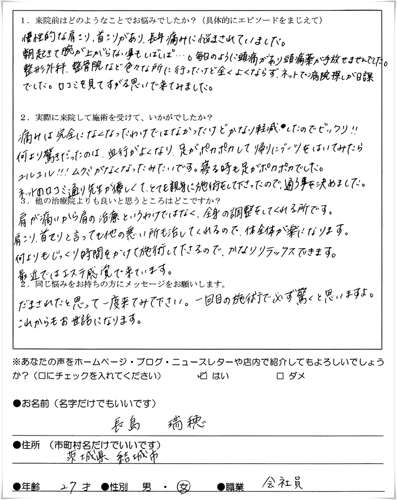 1．来院前はどのようなことでお悩みでしたか？（具体的にエピソードをまじえて）
慢性的な肩こり、首こりがあり、長年痛みに悩まされていました。
朝起きて腕が上がらない事もしばしば…。毎日のように頭痛があり頭痛薬が手放せませんでした。
整形外科、整骨院など色々な所に行ったけど全くよくならず、ネットで病院探しが日課
でした。口コミを見てすがる思いで来てみました。
2．実際に来院して施術を受けて、いかがでしたか？
痛みは完全になくなったわけではなかったけどかなり軽減したのでビックリ!!
何より驚きだったのは、血行がよくなり、足がポカポカして帰りにブーツをはいてみたら
ユルユル!!!ムクミがなくなったみたいです。寝る時も足がポカポカでした。
ネットの口コミ通り先生が優しくもとても親身に施術をして下さったので、通う事を決めました。
3．他の治療院よりも良いと思うところはどこですか？
肩が痛いから肩の治療というわけではなく、全身の調整をしてくれる所です。
肩こり、首こりと言っても他の悪い所も治してくれるので、体全体が楽になります。
何よりもじっくり時間をかけて施術して下さるので、かなりリラックスできます。
最近ではエステ感覚で来ています。
2．同じ悩みをお持ちの方にメッセージをお願いします。
だまされたと思って一度来てみて下さい。一回目の施術で必ず驚くと思いますよ。
これからもお世話になります。
※あなたの声をホームページ・ブログ・ニュースレターや店内で紹介してもよろしいでしょう
か？（□にチェックを入れてください） ☑ はい □ ダメ
●お名前（名字だけでもいいです）
長島 瑞穂
●住所 （市町村名だけでいいです）
茨城県 結城市
●年齢 27才 ●性別 男・女 ●職業 会社員